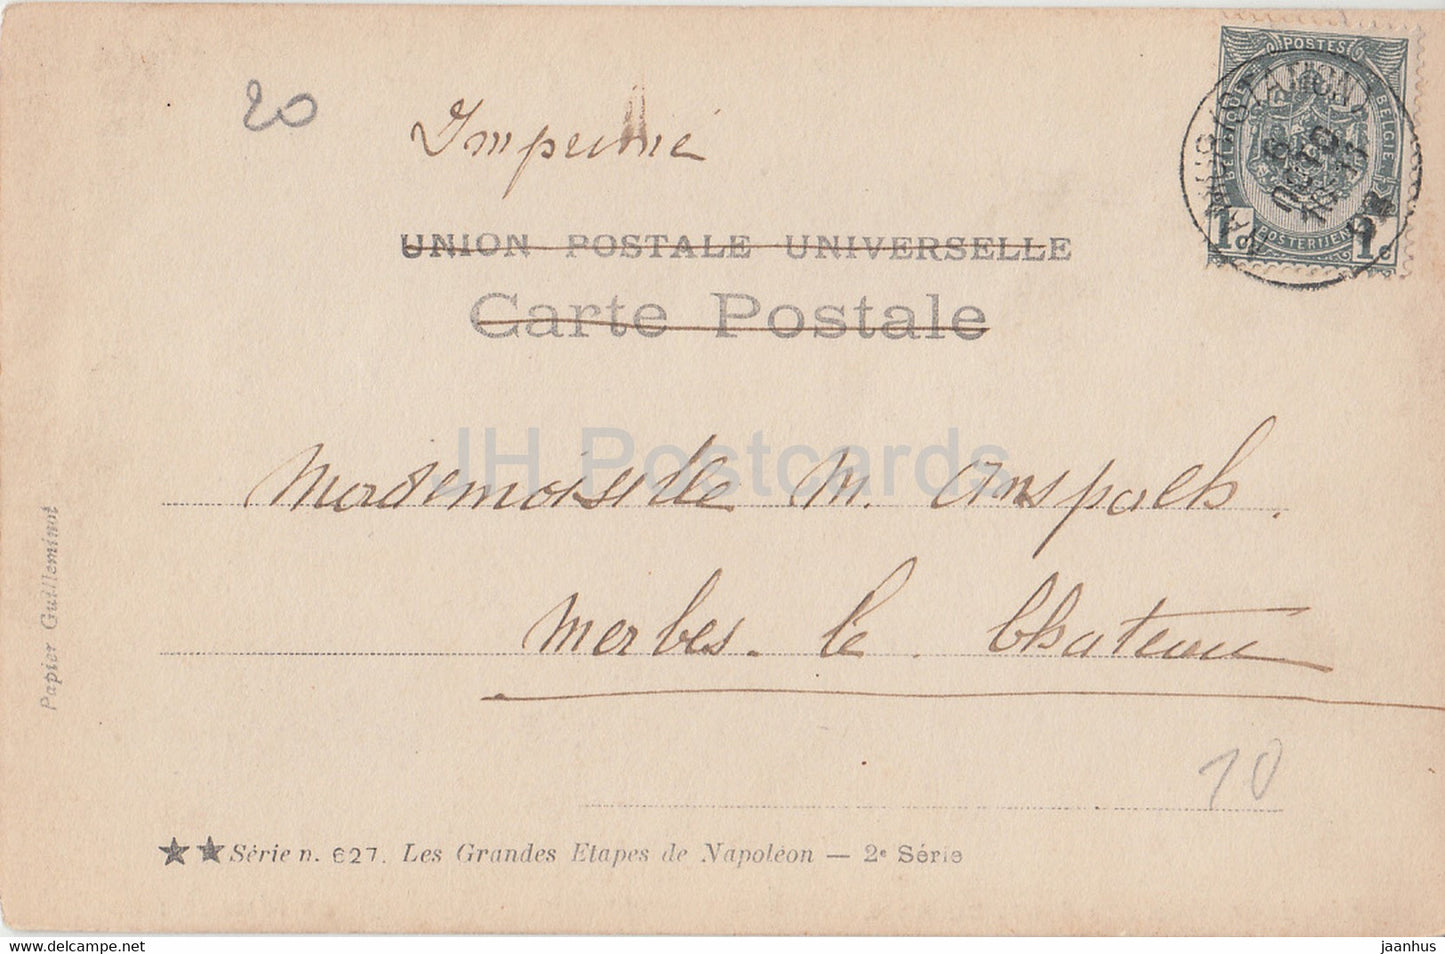 20
Imprimé
UNION POSTALE UNIVERSELLE
Carte Postale
POSTES
BELGIQUE
BELGIE
POSTERIJEN
1c 1c
NAMUR (STATION)
Mademoiselle M. Anspach.
Merbes-le Chateau
10
Papier Guilleminot
★★ Série n. 627. Les Grandes Etapes de Napoléon — 2e Série
JH Postcards
www.delcampe.net
jaanhus